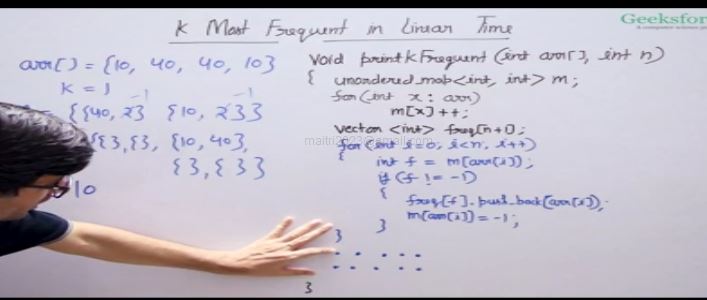 K Most Frequent in Linear Time
Geeksfor
A computer science po
arr[] = {10, 40, 40, 10}
K = 1
-1 -1
{{40, 2} {10, 2}}
{ }, { }, {10, 40},
{ }, { }}
10
void printKFrequent (int arr[], int n)
{ unordered_map<int, int> m;
for (int x : arr)
m[x]++;
vector <int> freq[n+1];
for (int i=0; i<n; i++)
{ int f = m[arr[i]];
if (f != -1)
{ freq[f].push_back(arr[i]);
m[arr[i]] = -1;
}
}
. . . . .
. . . . .
}